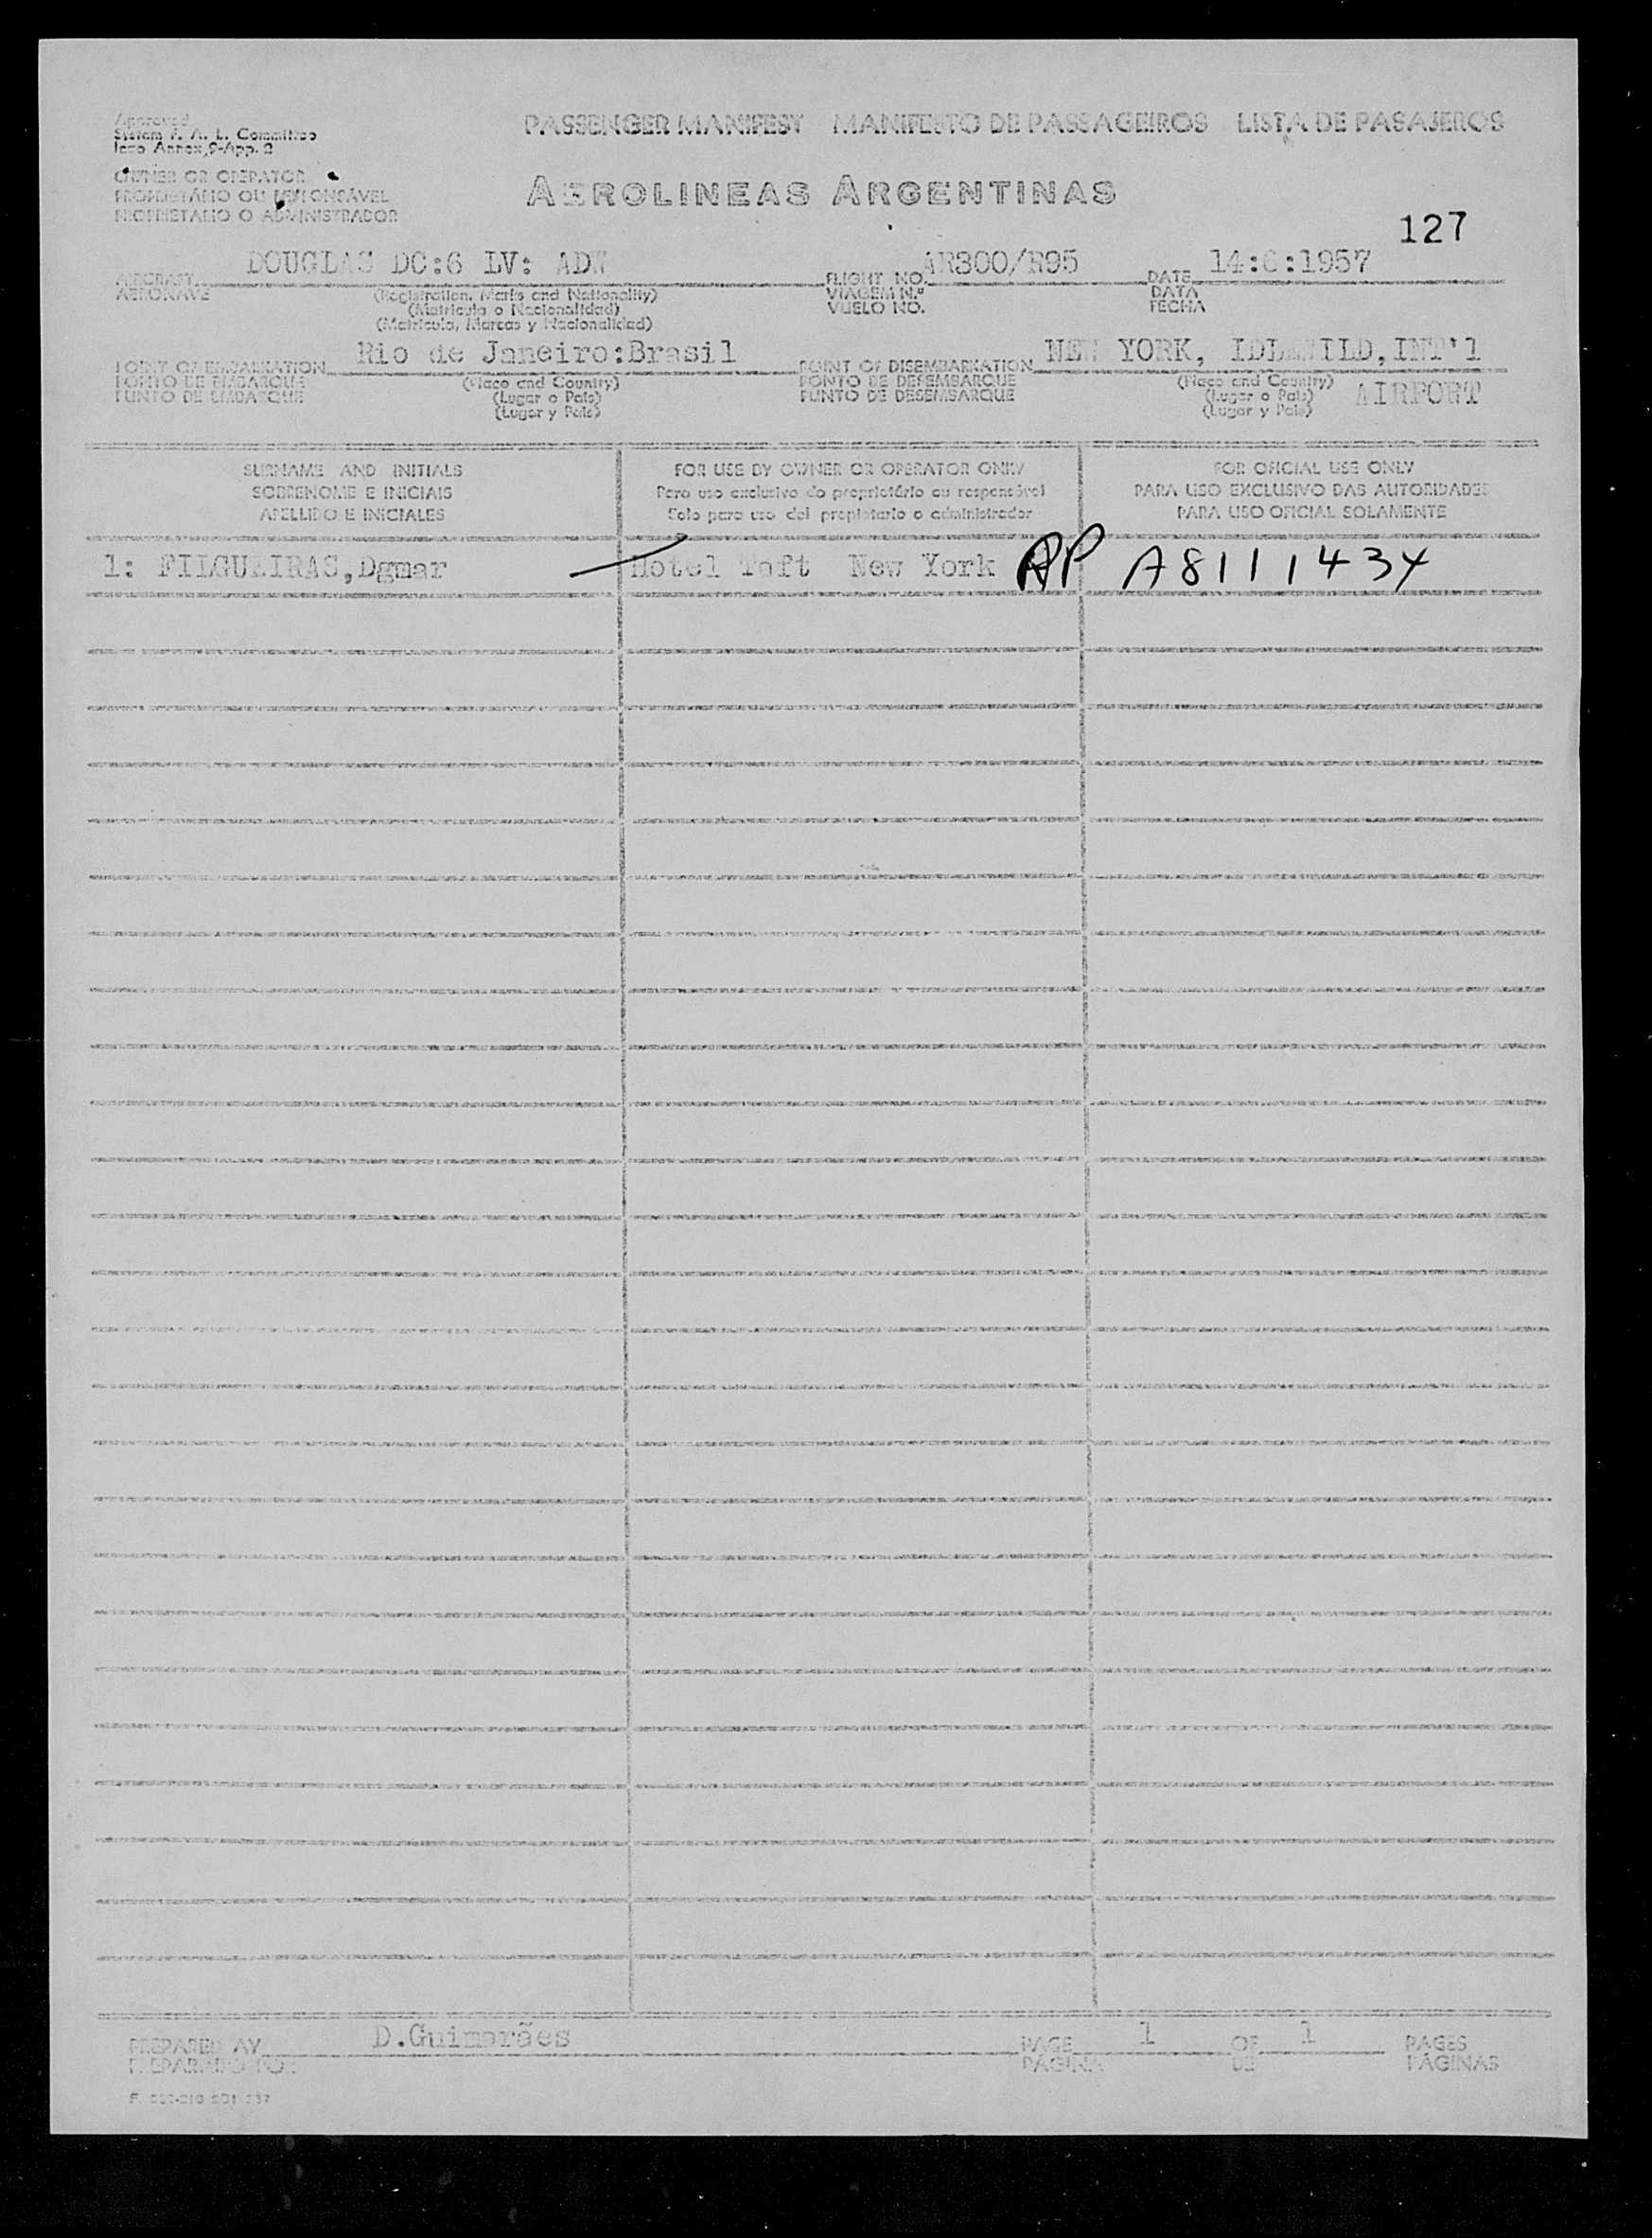 Approved
Sistem F. A. L. Committee
Icao Annex,9-App. 2
PASSENGER MANIFEST MANIFESTO DE PASSAGEIROS LISTA DE PASAJEROS
OWNER OR OPERATOR
PROPRIETÁRIO OU RESPONSÁVEL
PROPRIETARIO O ADMINISTRADOR
AEROLINEAS ARGENTINAS
127
AIRCRAFT DOUGLAS DC:6 LV: ADW FLIGHT NO. AR300/R95 DATE 14: :1957
AERONAVE (Registration, Marks and Nationality) VIAGEM N.º DATA
(Matricula o Nacionalidad) VUELO NO. FECHA
(Matricula, Marcas y Nacionalidad)
POINT OF EMBARKATION Rio de Janeiro:Brasil POINT OF DISEMBARKATION NEW YORK, IDLEWILD,INT'l
PONTO DE EMBARQUE (Place and Country) PONTO DE DESEMBARQUE (Place and Country) AIRPORT
PUNTO DE EMBARQUE (Lugar o País) PUNTO DE DESEMBARQUE (Lugar o País)
(Lugar y País) (Lugar y País)
SURNAME AND INITIALS FOR USE BY OWNER OR OPERATOR ONLY FOR OFICIAL USE ONLY
SOBRENOME E INICIAIS Para uso exclusivo do proprietário ou responsável PARA USO EXCLUSIVO DAS AUTORIDADES
APELLIDO E INICIALES Solo para uso del propietario o administrador PARA USO OFICIAL SOLAMENTE
1: FILGUEIRAS,Dgmar Hotel Taft New York RP A8111434
PREPARED AY D.Guimarães PAGE 1 OF 1 PAGES
PREPARADO POR PÁGINA DE PÁGINAS